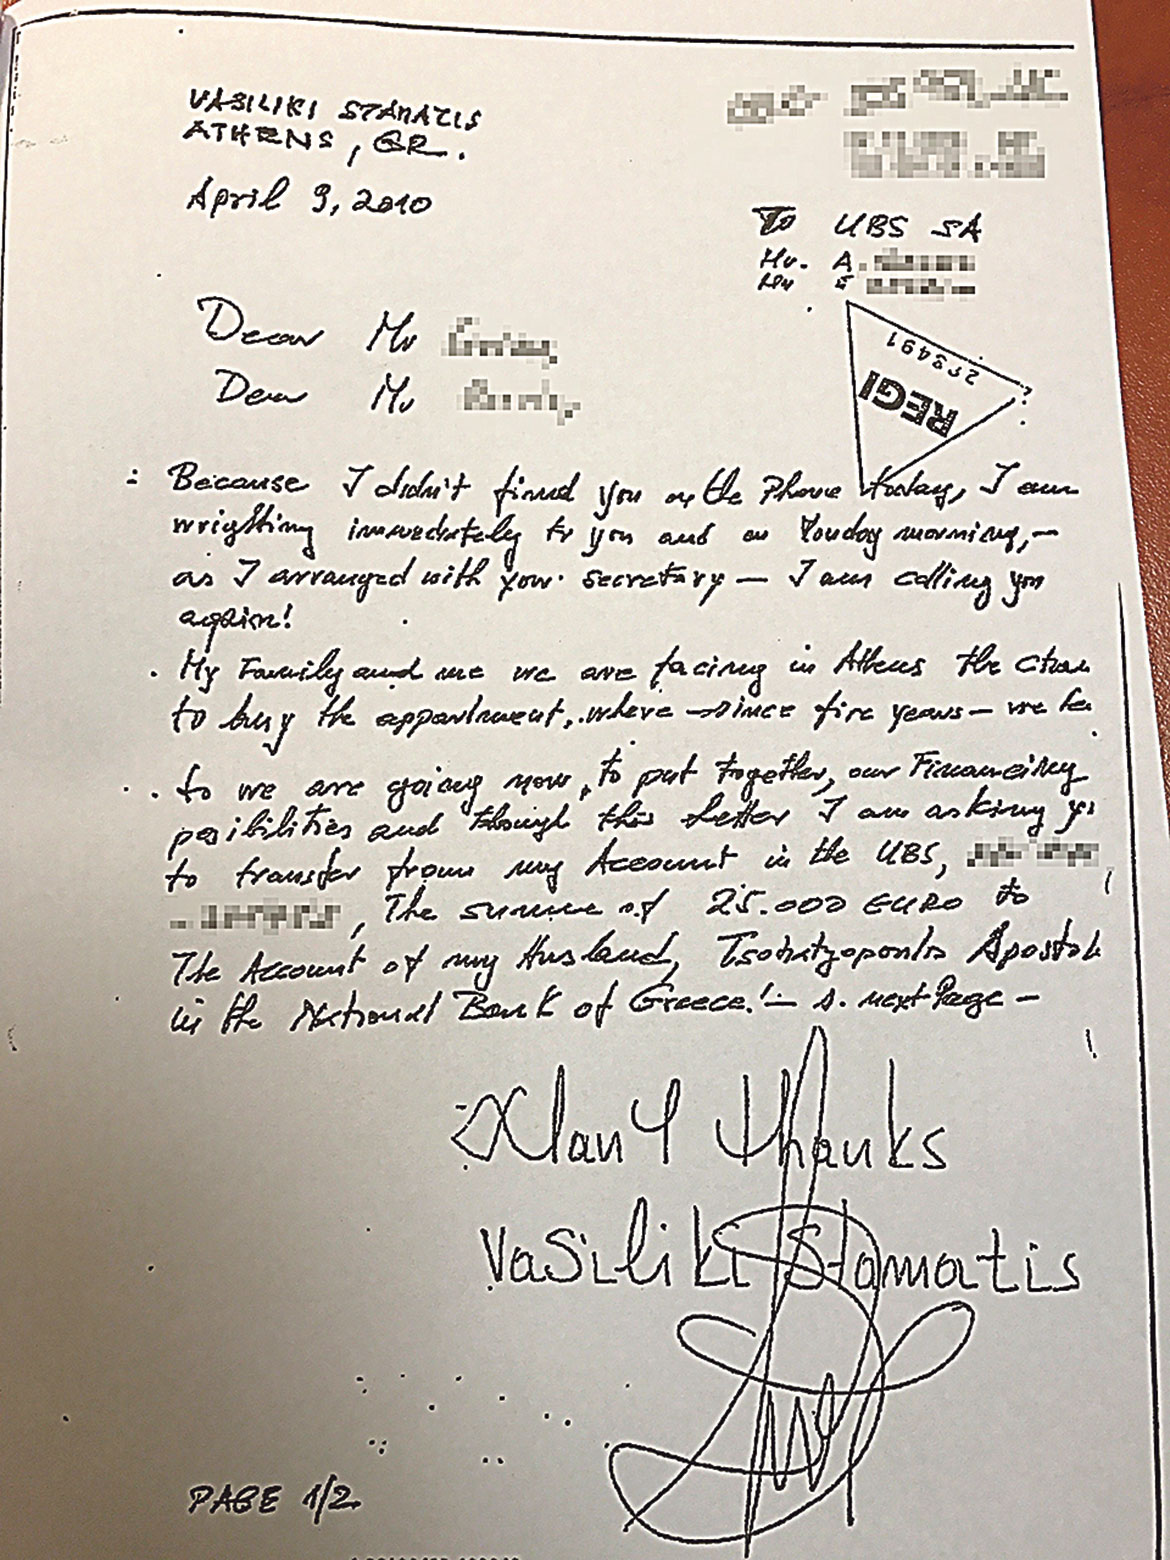 VASILIKI STAMATIS
ATHENS, GR.
April 9, 2010
To UBS SA
Mr. A.
Mr
Dear Mr
Dear Mr
REGI
273491
Because I didn't find you on the Phone today, I am
wrighting immediately to you and on Monday morning, –
as I arranged with your secretary – I am calling you
again!
. My Family and me we are facing in Athens the
to buy the appartment, where – since five years – we
. So we are going now, to put together, our Financing
posibilities and through this Letter I am asking
to transfer from my Account in the UBS,
, The summe of 25.000 EURO to
The Account of my Husband, Apostol
in the National Bank of Greece! – s. next Page –
Many thanks
Vasiliki Stamatis
PAGE 1/2